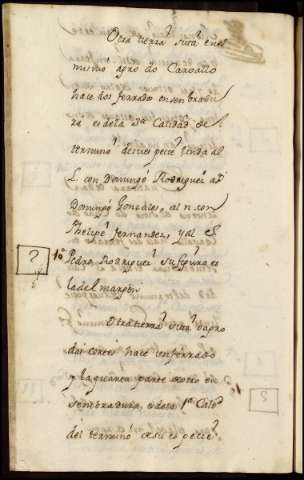 Otra tierra sita en el
mismo agro do Carvallo
hace dos ferrados en senbradu
ra es dela 3ª Calidad de
termino de su espeçe linda al
L. con Domingo Rodriguez a P.
Domingo Gonzales, al n con
Phelipe fernandez, y al S.
1ª Pedro Rodriguez su figura es
?
la del margen
Otra tierra sita agro
das cortes hace un ferrado
y la quarta parte de otro en
1ª
senbradura, es dela 1ª Calid
?
del termino de su espeçe